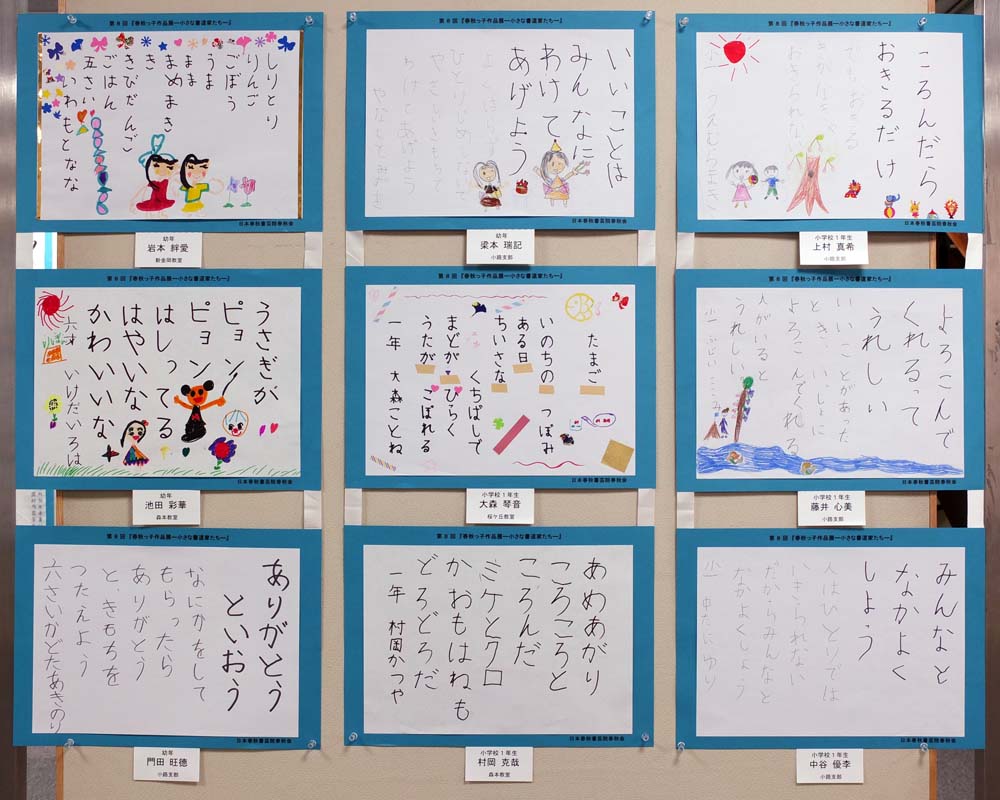 第8回『春秋っ子作品展―小さな書道家たち―』
しりとり
りんご
ごぼう
うま
まま
まめまき
き
きびだんご
ごはん
五さい
いわもとなな
日本春秋書芸院春秋会
幼年
岩本 絆愛
新金岡教室
第8回『春秋っ子作品展―小さな書道家たち―』
いいことは
みんなに
わけて
あげよう
日本春秋書芸院春秋会
幼年
梁本 瑞記
小路支部
第8回『春秋っ子作品展―小さな書道家たち―』
ころんだら
おきるだけ
日本春秋書芸院春秋会
小学校1年生
上村 真希
小路支部
第8回『春秋っ子作品展―小さな書道家たち―』
うさぎが
ピョン
ピョン
はしってる
はやいな
かわいいな
六才 いけだいろは
日本春秋書芸院春秋会
幼年
池田 彩華
森本教室
第8回『春秋っ子作品展―小さな書道家たち―』
たまご
いのちの つぼみ
ある日
ちいさな くちばしで
まどが ひらく
うたが こぼれる
一年 大森ことね
日本春秋書芸院春秋会
小学校1年生
大森 琴音
桜ケ丘教室
第8回『春秋っ子作品展―小さな書道家たち―』
よろこんで
くれるって
うれしい
いいことがあった
とき、いっしょに
よろこんでくれる
人がいると
うれしい
小一 ふじいここみ
日本春秋書芸院春秋会
小学校1年生
藤井 心美
小路支部
第8回『春秋っ子作品展―小さな書道家たち―』
ありがとう
といおう
なにかをして
もらったら
ありがとう
と、きもちを
つたえよう
六さいかどたあきのり
日本春秋書芸院春秋会
幼年
門田 旺徳
小路支部
第8回『春秋っ子作品展―小さな書道家たち―』
あめあがり
ころころと
ころんだ
ミケとクロ
かおもはねも
どろどろだ
一年 村岡かつや
日本春秋書芸院春秋会
小学校1年生
村岡 克哉
森本教室
第8回『春秋っ子作品展―小さな書道家たち―』
みんなと
なかよく
しよう
人はひとりでは
いきられない
だからみんなと
なかよくしよう
小一 中たにゆり
日本春秋書芸院春秋会
小学校1年生
中谷 優李
小路支部